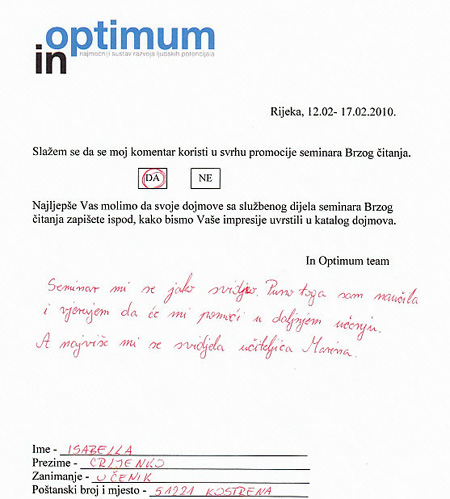 optimum
in najmoćniji sustav razvoja ljudskih potencijala
Rijeka, 12.02- 17.02.2010.
Slažem se da se moj komentar koristi u svrhu promocije seminara Brzog čitanja.
DA NE
Najljepše Vas molimo da svoje dojmove sa službenog dijela seminara Brzog
čitanja zapišete ispod, kako bismo Vaše impresije uvrstili u katalog dojmova.
In Optimum team
Seminar mi se jako svidio. Puno toga sam naučila
i vjerujem da će mi pomoći u daljnjem učenju.
A najviše mi se svidjela učiteljica Marina.
Ime - ISABELLA
Prezime - CRLJENKO
Zanimanje - UČENIK
Poštanski broj i mjesto - 51221 KOSTRENA